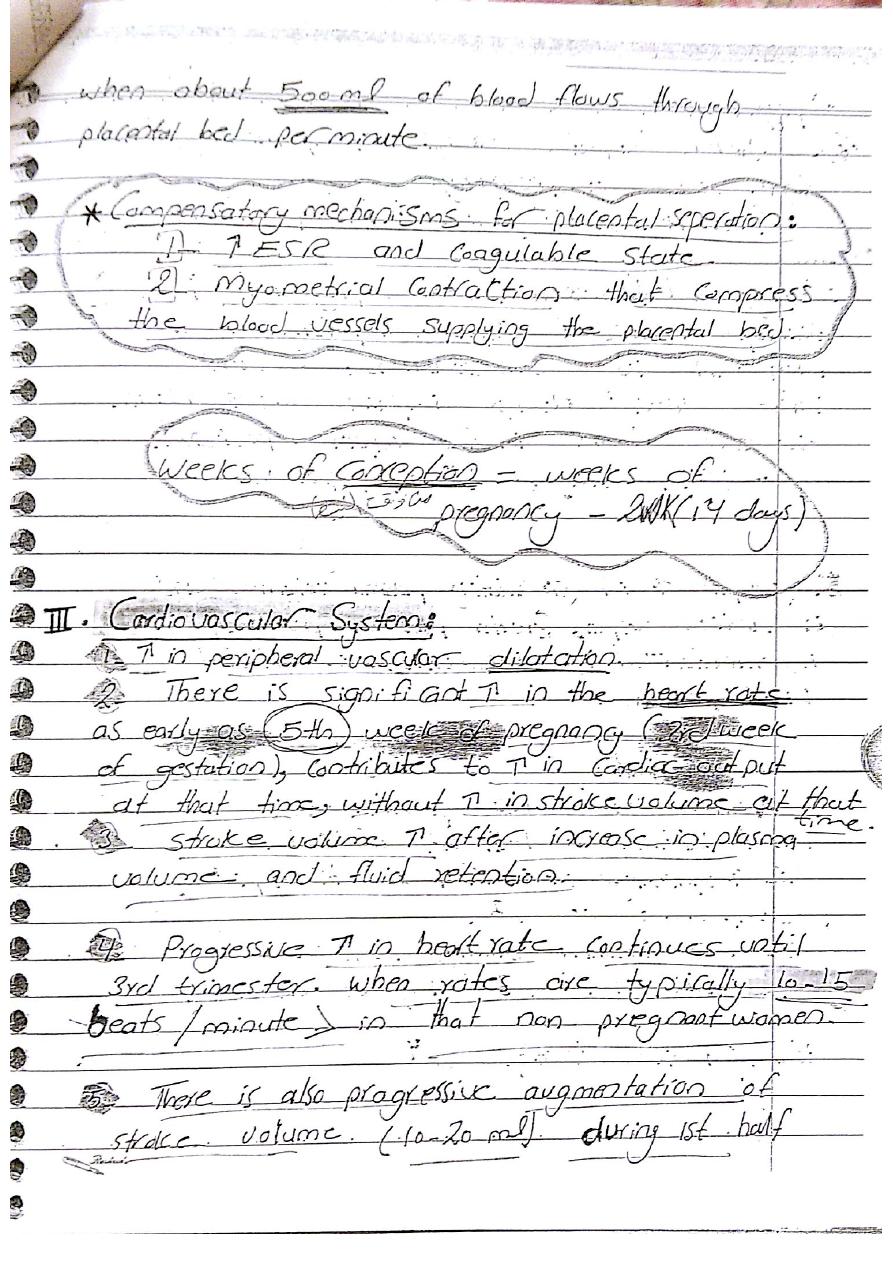 when about 500 ml of blood flows through
placental bed per minute.
* Compensatory mechanisms for placental seperation:
1 ↑ ESR and Coagulable State.
2 Myometrial Contraction that compress
the blood vessels supplying the placental bed.
Weeks of conception = weeks of
pregnancy - 2wk (14 days)
III. Cardiovascular System:
1 ↑ in peripheral vascular dilatation.
2 There is significant ↑ in the heart rate
as early as 5th week of pregnancy (3rd week
of gestation), contributes to ↑ in cardiac output
at that time, without ↑ in stroke volume at that
time.
3 stroke volume ↑ after increase in plasma
volume and fluid retention.
4 Progressive ↑ in heart rate continues until
3rd trimester. when rates are typically 10-15
beats / minute > in that non pregnant women.
5 There is also progressive augmentation of
stroke volume (10-20 ml) during 1st half